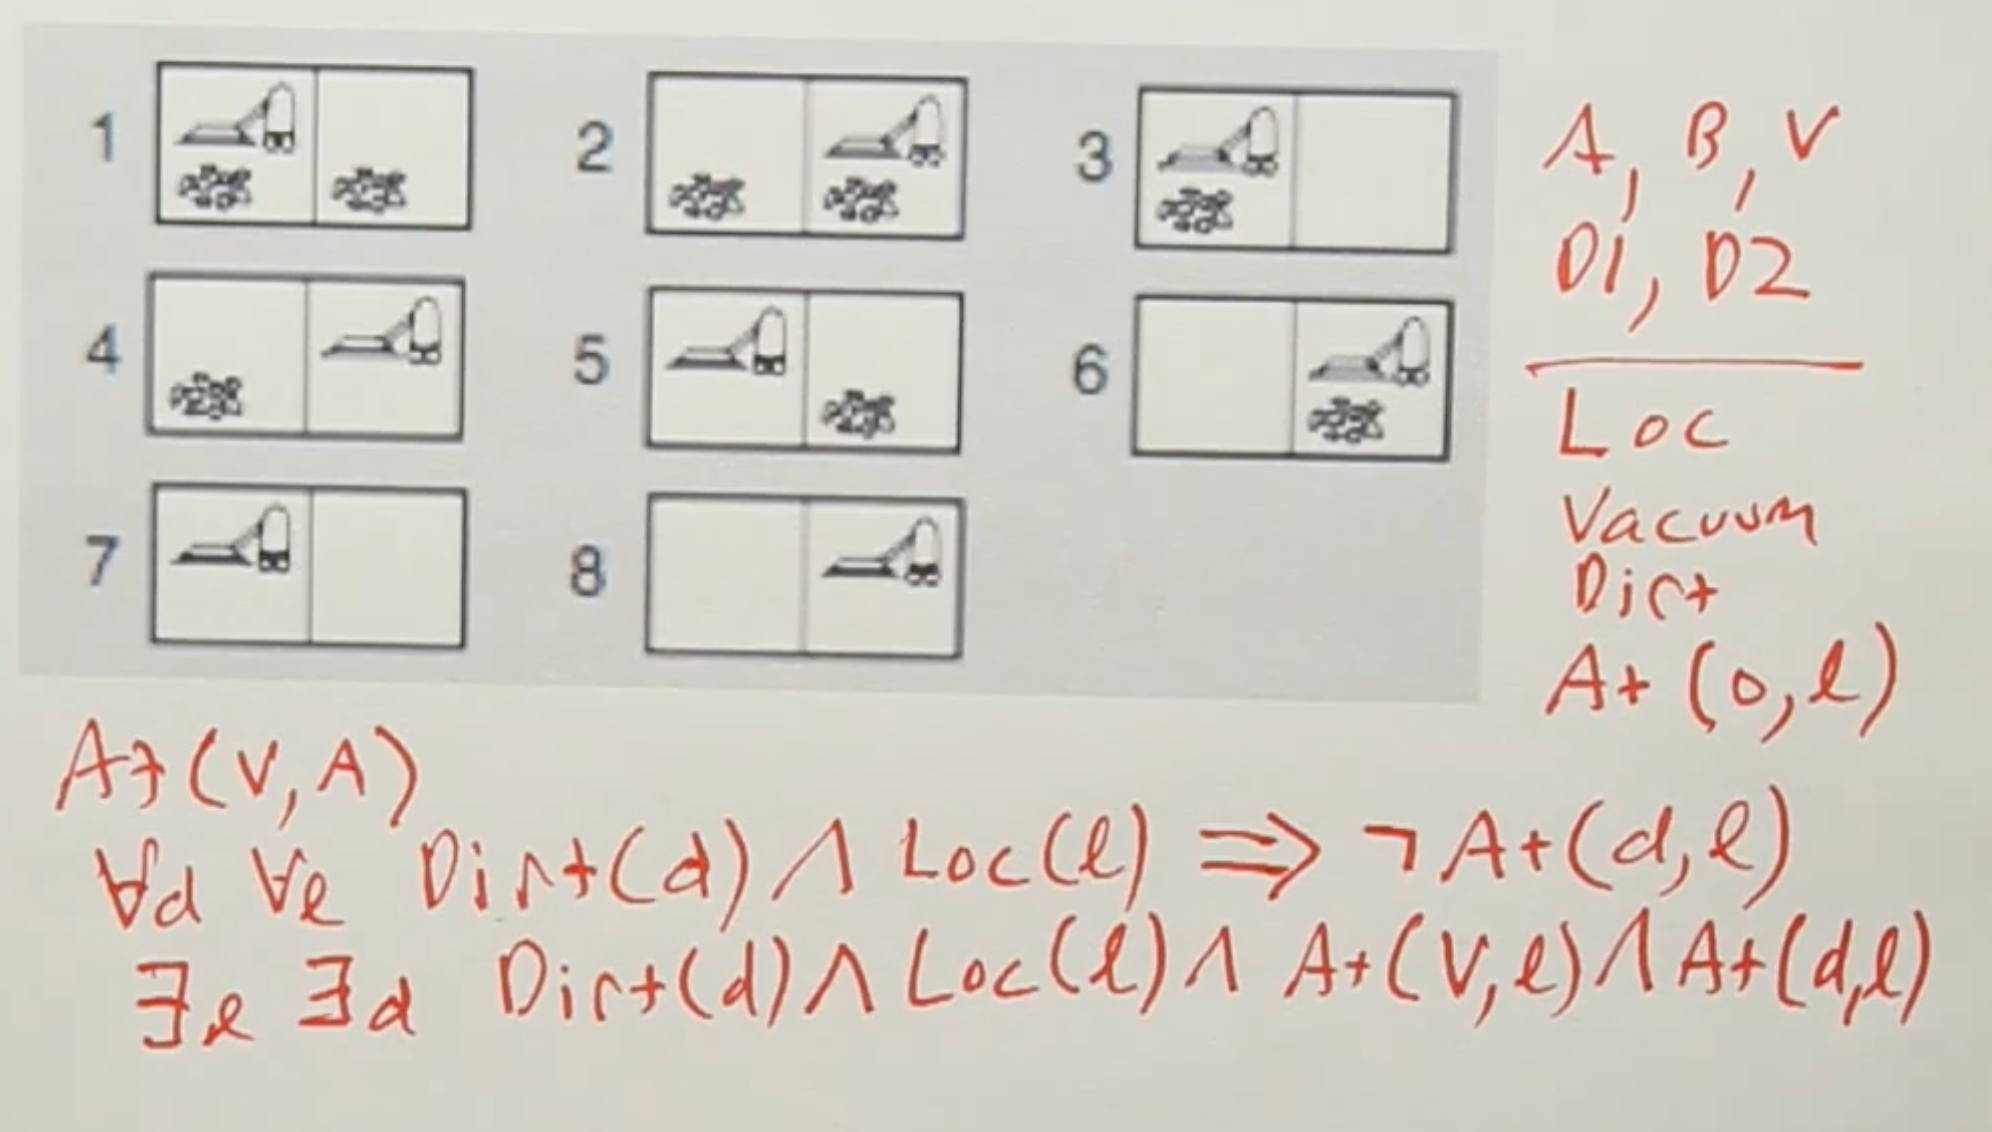 1 2 3
4 5 6
7 8
A, B, V
D1, D2
Loc
Vacuum
Dirt
At(o,l)
At(V,A)
∀d ∀l Dirt(d) ∧ Loc(l) ⇒ ¬At(d,l)
∃l ∃d Dirt(d) ∧ Loc(l) ∧ At(V,l) ∧ At(d,l)